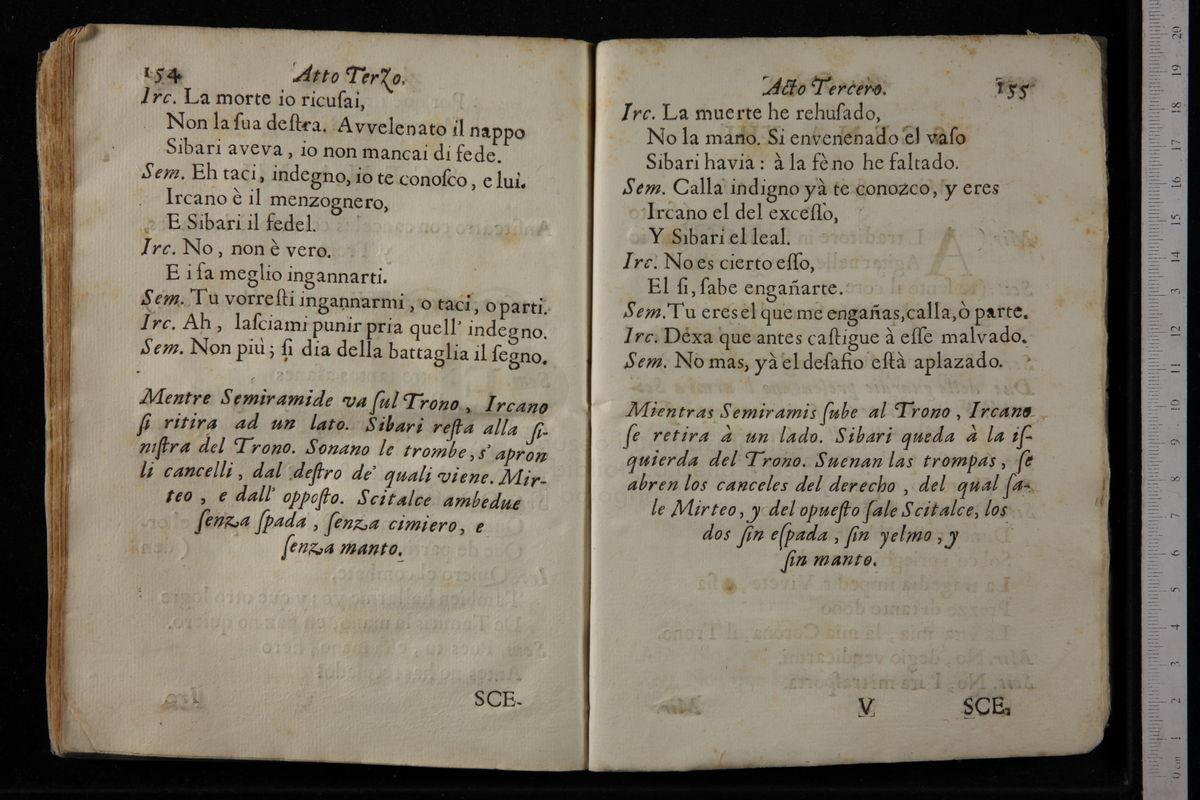 154 Atto Terzo.
Irc. La morte io ricuſai,
Non la ſua deſtra. Avvelenato il nappo
Sibari aveva, io non mancai di fede.
Sem. Eh taci, indegno, io te conoſco, e lui.
Ircano è il menzognero,
E Sibari il fedel.
Irc. No, non è vero.
E i ſa meglio ingannarti.
Sem. Tu vorreſti ingannarmi, o taci, o parti.
Irc. Ah, laſciami punir pria quell' indegno.
Sem. Non più; ſi dia della battaglia il ſegno.
Mentre Semiramide va ſul Trono, Ircano
ſi ritira ad un lato. Sibari reſta alla ſi-
niſtra del Trono. Sonano le trombe, s' apron
li cancelli, dal deſtro de' quali viene. Mir-
teo, e dall' oppoſto. Scitalce ambedue
ſenza ſpada, ſenza cimiero, e
ſenza manto.
SCE-
Acto Tercero. 155
Irc. La muerte he rehuſado,
No la mano. Si envenenado el vaſo
Sibari havia: à la fè no he faltado.
Sem. Calla indigno yà te conozco, y eres
Ircano el del exceſſo,
Y Sibari el leal.
Irc. No es cierto eſſo,
El ſi, ſabe engañarte.
Sem. Tu eres el que me engañas, calla, ò parte.
Irc. Dexa que antes caſtigue à eſſe malvado.
Sem. No mas, yà el deſafio eſtà aplazado.
Mientras Semiramis ſube al Trono, Ircano
ſe retira à un lado. Sibari queda à la iſ-
quierda del Trono. Suenan las trompas, ſe
abren los canceles del derecho, del qual ſa-
le Mirteo, y del opueſto ſale Scitalce, los
dos ſin eſpada, ſin yelmo, y
ſin manto.
V SCE-